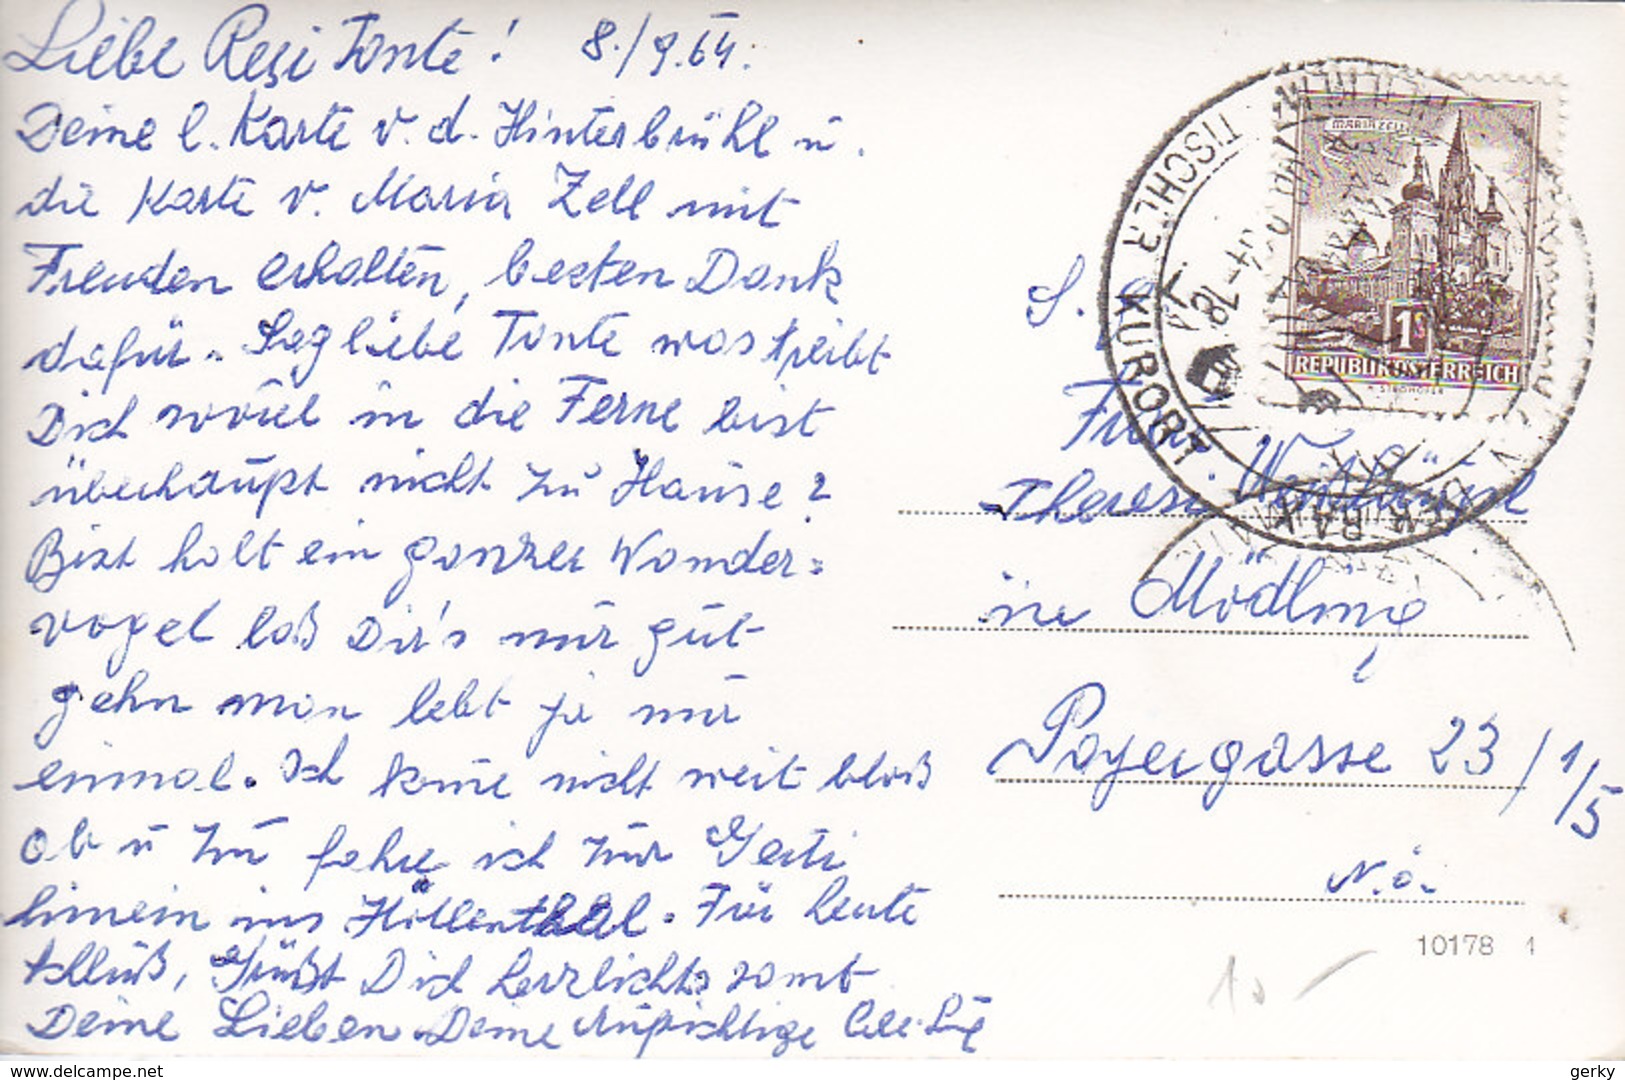 Liebe Resi Tante! 8./9.64.
Deine l. Karte v. d. Hinterbrühl u.
die Karte v. Maria Zell mit
Freuden erhalten, besten Dank
dafür. Sag liebe Tante was treibt
Dich soviel in die Ferne bist
überhaupt nicht zu Hause?
Bist halt ein ganzer Wander=
vogel laß Dir's nur gut
gehn man lebt ja nur
einmal. Ich kome nicht weit bloß
ab u zu fahre ich zur Gerti
hinein ins Höllenthal. Für heute
schluß, Grüßt Dich herzlichts samt
Deine Lieben Deine Aufrichtige
MARIAZELL
1
REPUBLIK ÖSTERREICH
KURORT
Frau
Theresi
in Mödling
Payergasse 23/1/5
N.Ö.
10178 1
10 -
delcampe.net
gerky